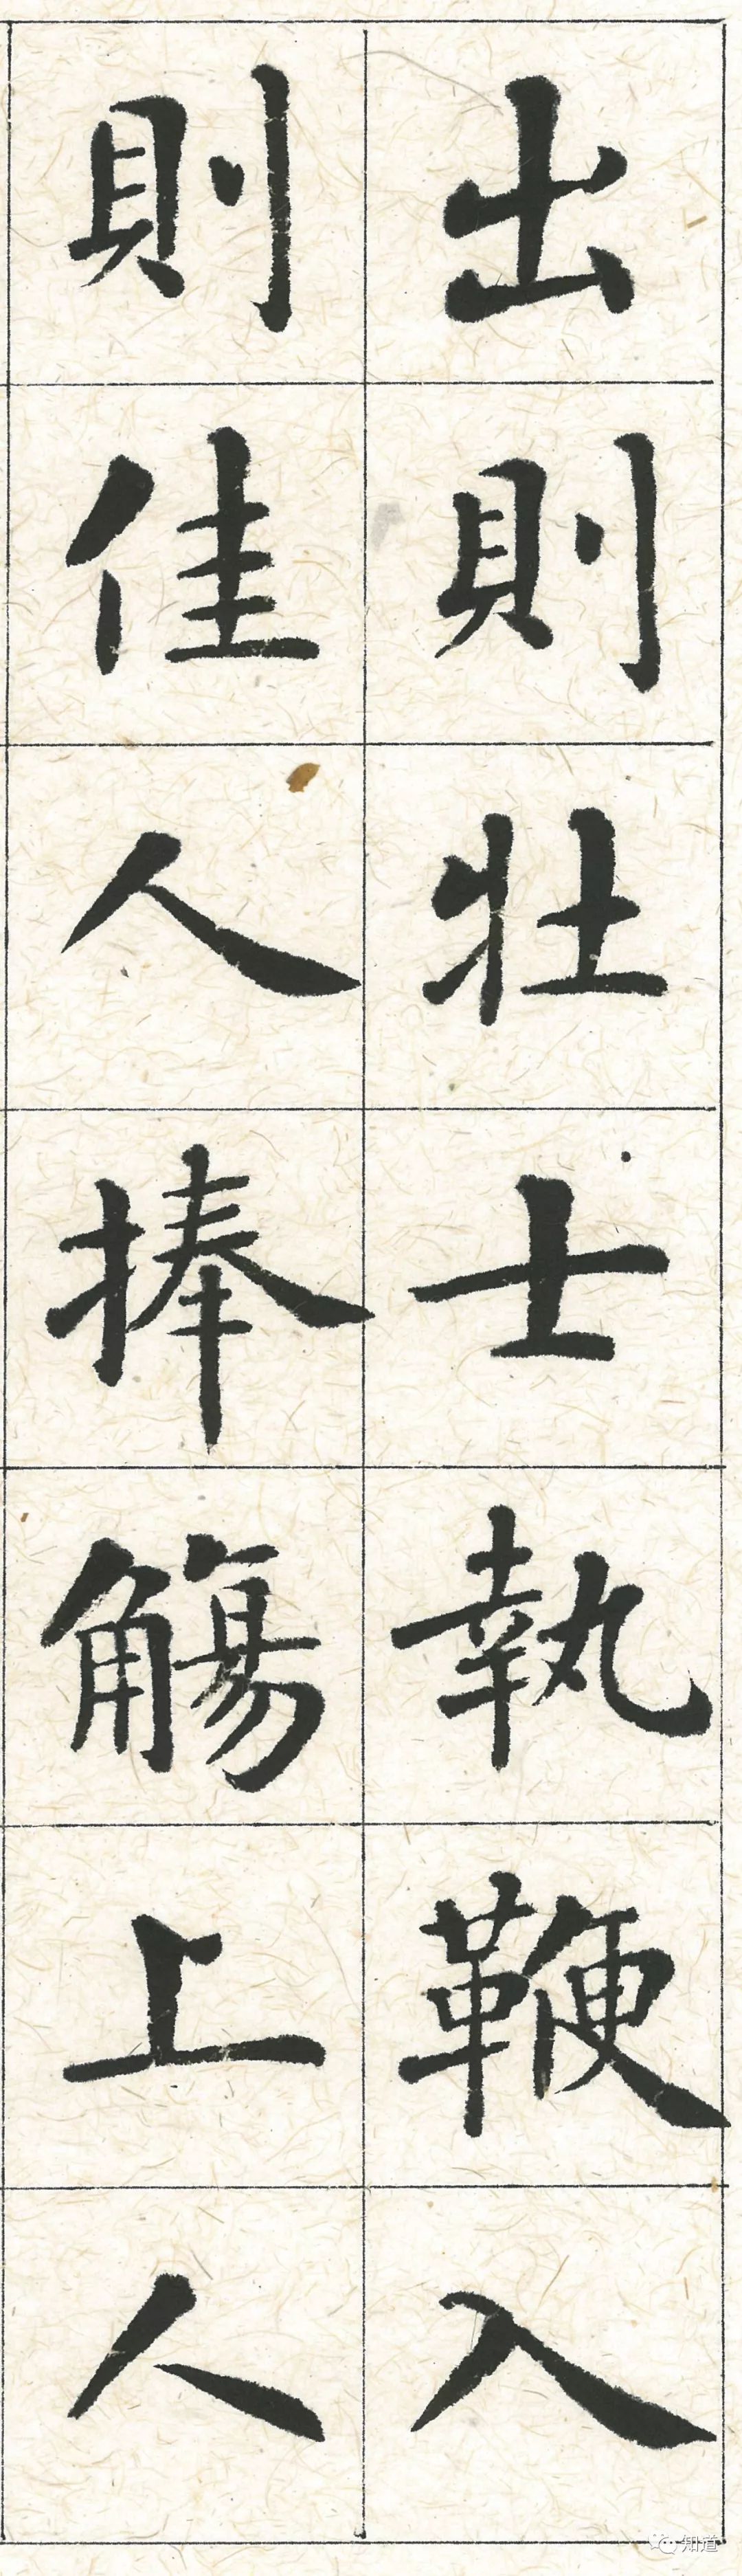 出則壯士執鞭入
則佳人捧觴上人
知道